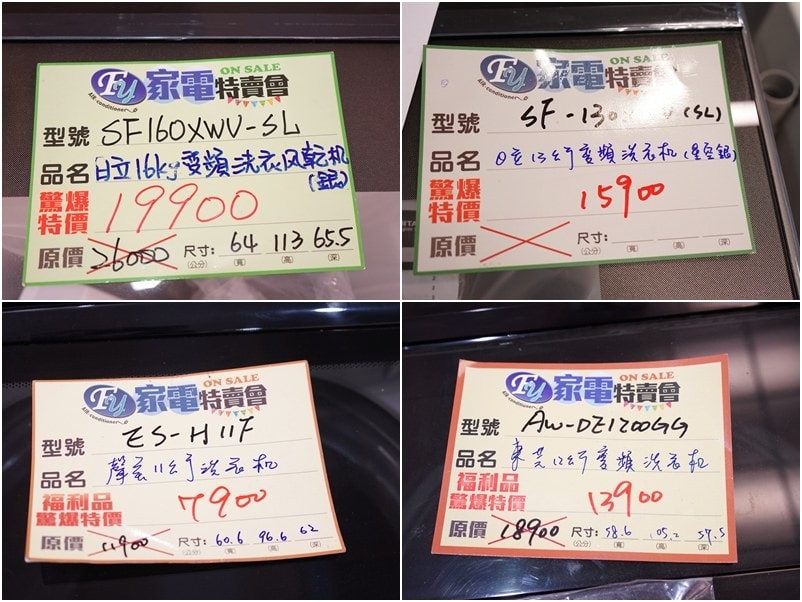 FU 家電特賣會 ON SALE
AIR conditioner
型號 SF160XWV-SL
品名 日立16kg变頻洗衣风乾机
(銀)
驚爆特價 19900
原價 26000 尺寸: 64 113 65.5
(公分) (寬) (高) (深)
FU 家電特賣會 ON SALE
AIR conditioner
型號 SF-130 (SL)
品名 日立13公斤变頻洗衣机(星空銀)
驚爆特價 15900
原價 尺寸:
(公分) (寬) (高) (深)
FU 家電特賣會 ON SALE
AIR conditioner
型號 ES-H11F
品名 聲宝11公斤洗衣机
福利品
驚爆特價 7900
原價 11900 尺寸: 60.6 96.6 62
(公分) (寬) (高) (深)
FU 家電特賣會 ON SALE
AIR conditioner
型號 AW-DE1200GG
品名 東芝12公斤变頻洗衣机
福利品
驚爆特價 13900
原價 18900 尺寸: 58.6 105.2 57.5
(公分) (寬) (高) (深)